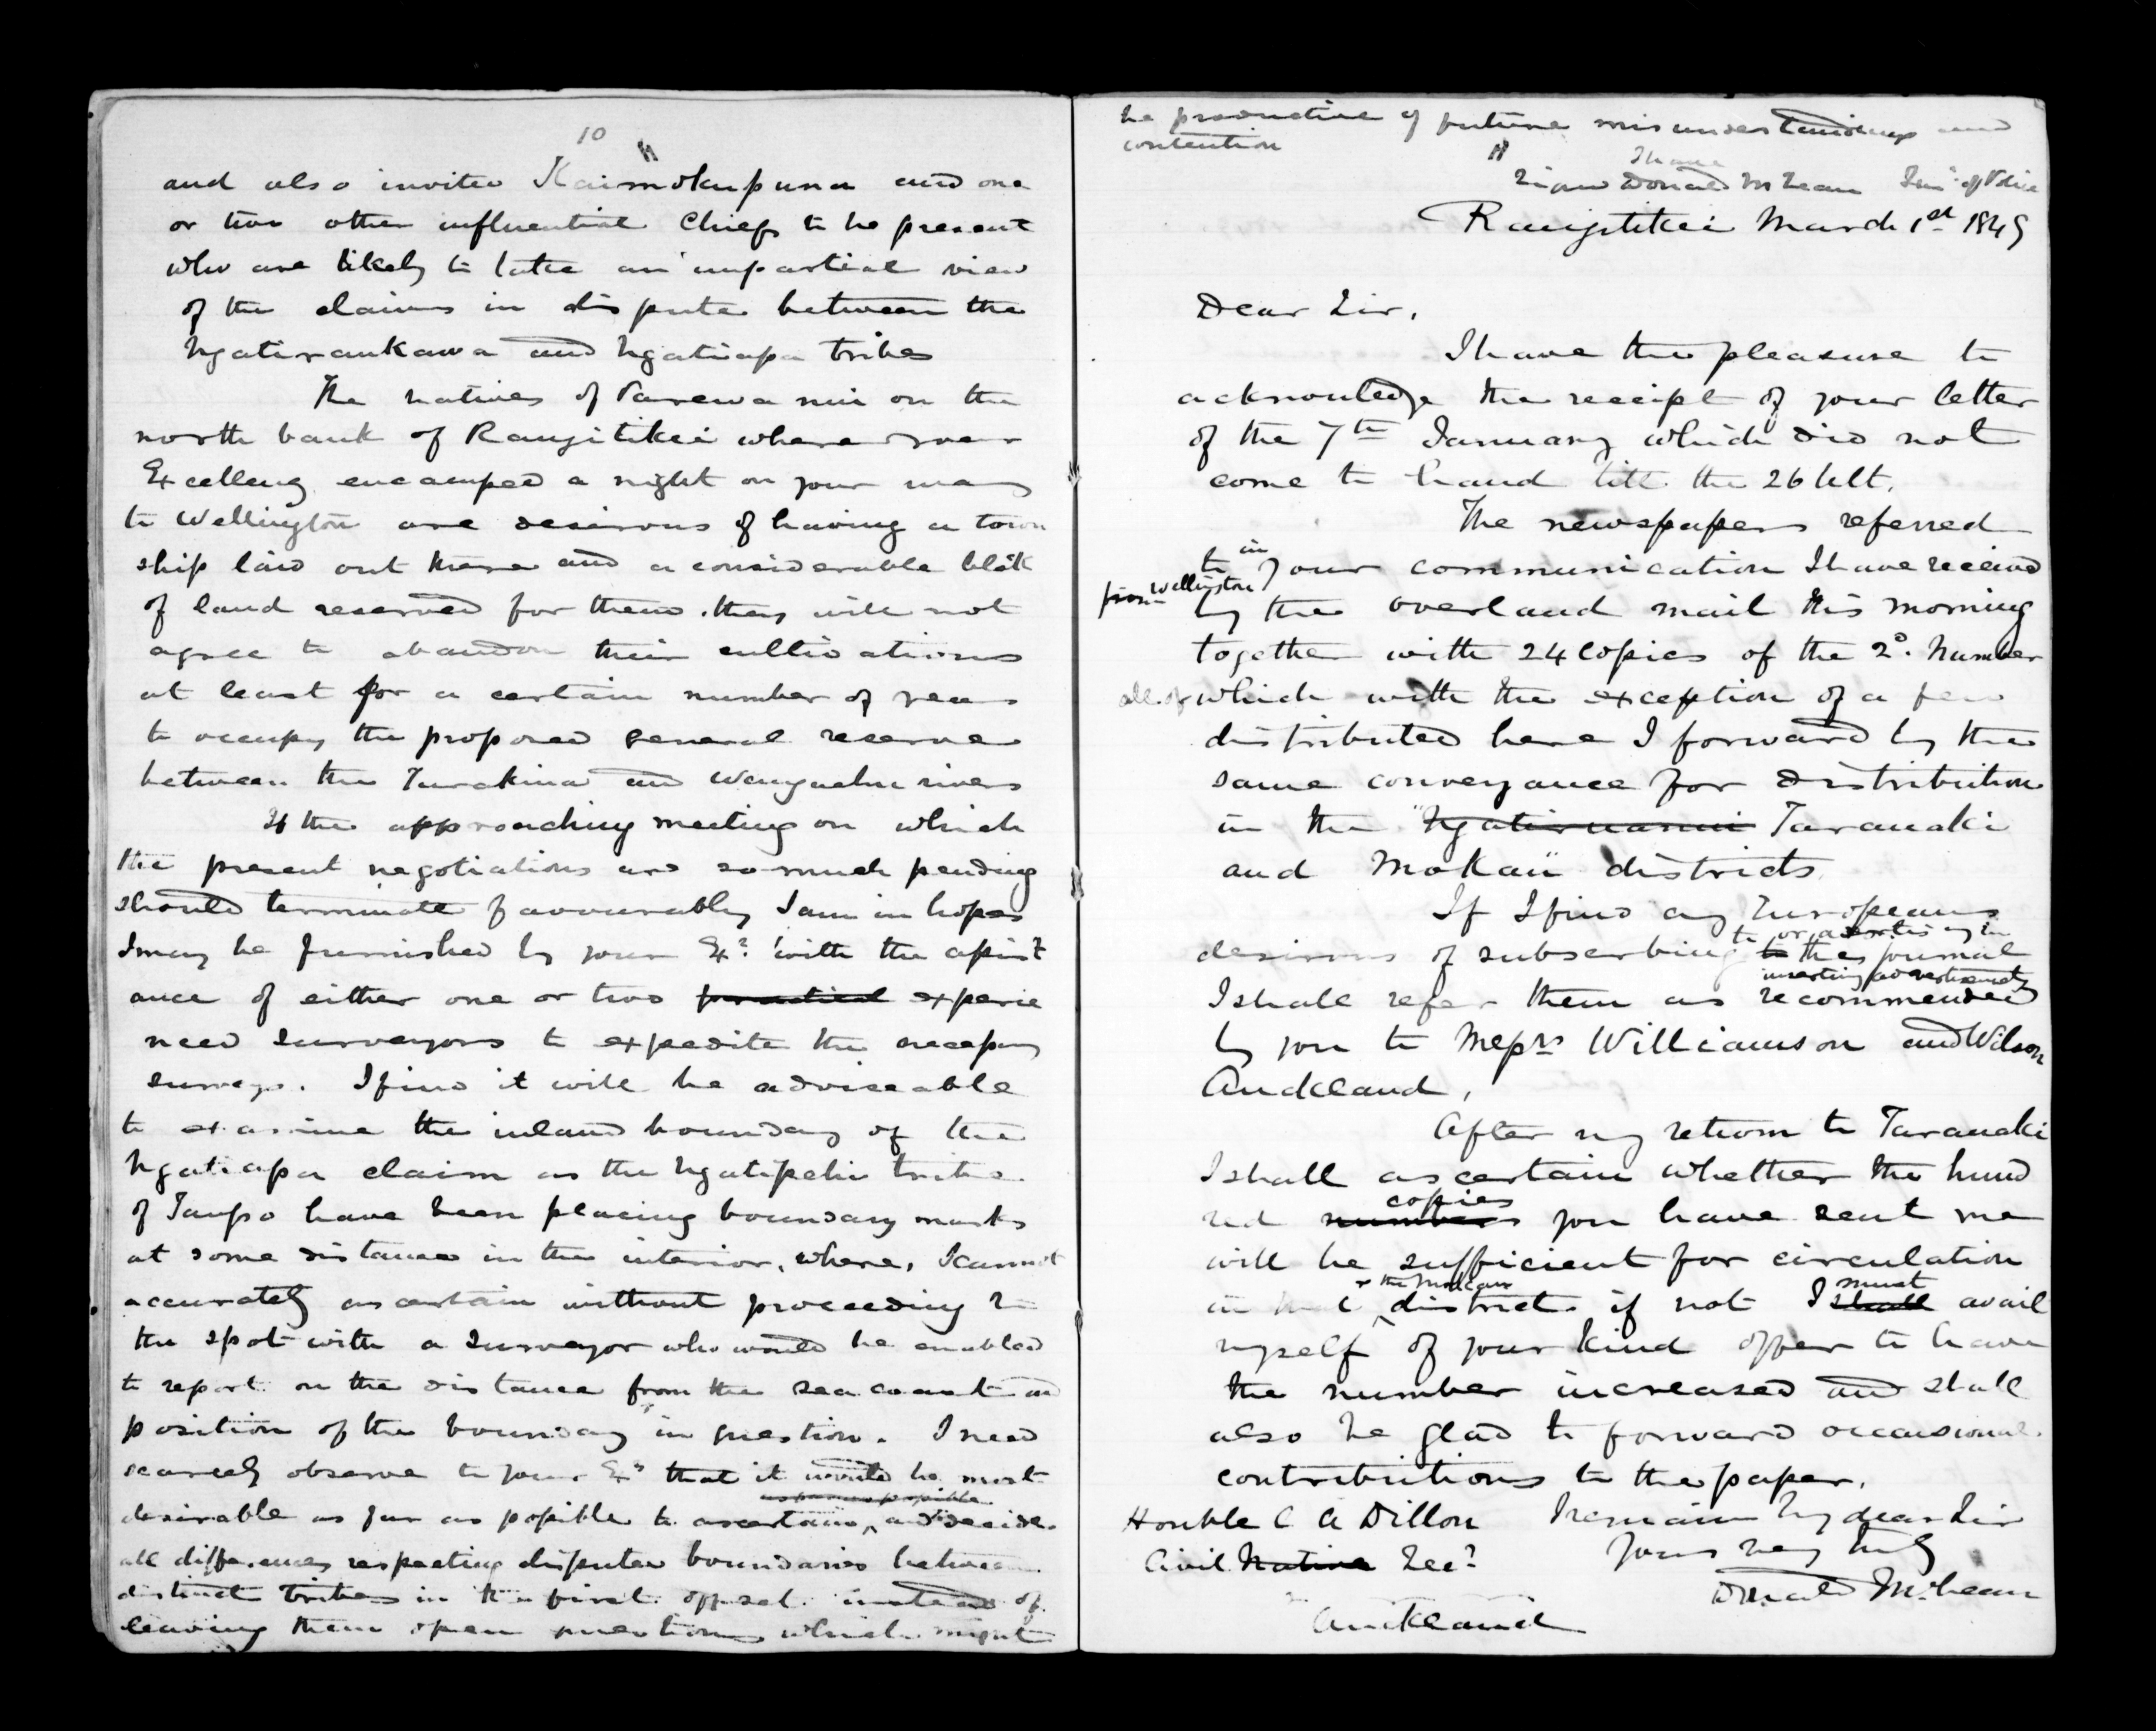 10
and also invited Kaimokupuna and one
or two other influential Chiefs to be present
who are likely to take an impartial view
of the claims in dispute between the
Ngatiraukawa and Ngatiapa tribes
The natives of Parewanui on the
north bank of Rangitikei where your
Excellency encamped a night on your way
to Wellington are desirous of having a town
ship laid out there and a considerable block
of land reserved for them. they will not
agree to abandon their cultivations
at least for a certain number of years
to occupy the proposed general reserve
between the Turakina and Wangaehu rivers
If the approaching meeting on which
the present negotiations are so much pending
should terminate favourably I am in hopes
I may be furnished by your Ex.y with the assist
ance of either one or two practical experie
nced surveyors to expedite the necessary
surveys. I find it will be adviseable
to examine the inland boundary of the
Ngatiapa claim as the Ngatipehi tribe
of Taupo have been placing boundary marks
at some distance in the interior, where, I cannot
accurately ascertain without proceeding to
the spot with a surveyor who would be enabled
to report on the distance from the sea coast and
position of the boundary in question. I need
scarcely observe to your Ex.y that it would be most
as far as possible
desirable as far as possible to ascertain, and decide
all differences respecting disputed boundaries between
distinct tribes in the first instead of
leaving them open questions which might
be productive of future misunderstandings and
contention
I have
Signed Donald McLean Insp. of Police
Rangitikei March 1st 1849
Dear Sir,
I have the pleasure to
acknowledge the receipt of your letter
of the 7th January which did not
come to hand till the 26 Ult.
The newspapers referred
to in your communication I have received
from Wellington
by the overland mail this morning
together with 24 copies of the 2o. Number
all of which with the exception of a few
distributed here I forward by the
same conveyance for distribution
in the Ngatiruanui Taranaki
and Mokau districts
If I find any Europeans
to or advertising in
desirous of subscribing to the journal
inserting advertisements
I shall refer them as recommended
by you to Messrs Williamson and Wilson
Auckland,
After my return to Taranaki
I shall ascertain whether the hund
copies
red numbers you have sent me
will be sufficient for circulation
& the Mokau must
in the district. if not I shall avail
myself of your kind offer to have
the number increased and shall
also be glad to forward occasional
contributions to the paper.
Honble C A Dillon I remain My dear Sir
Civil Native Secy Yours very truly
Donald McLean
Auckland